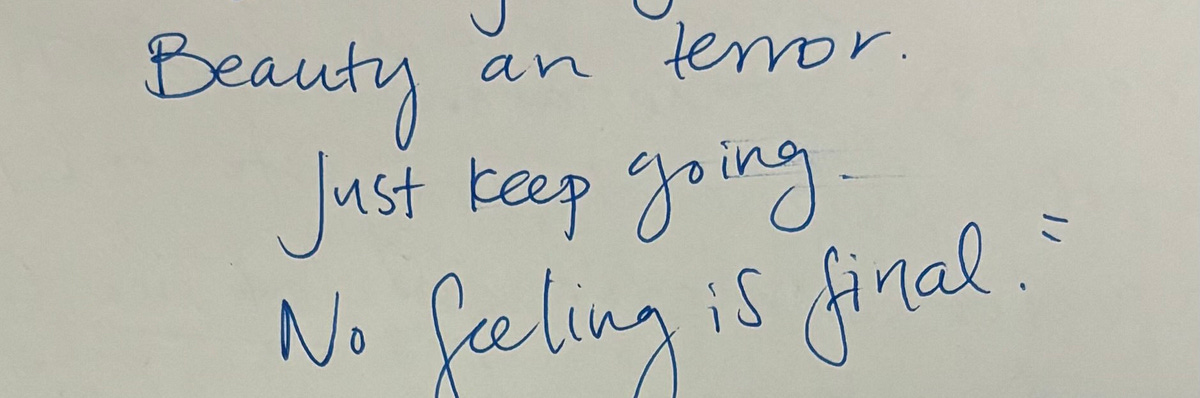 Beauty an terror.
Just keep going-
No feeling is final."